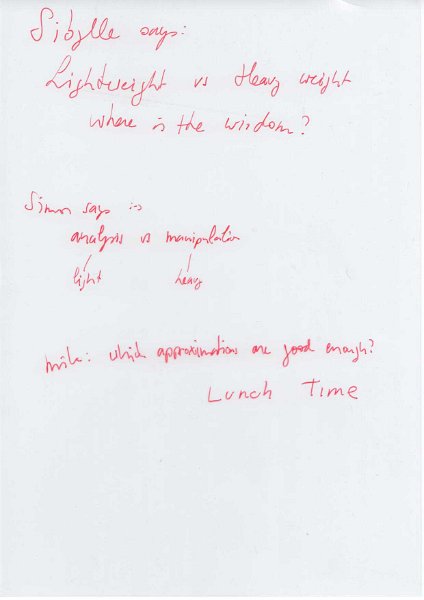 Sibylle says:
Lightweight vs Heavy weight
where is the wisdom?
Simon says :->
analysis vs manipulation
light heavy
which approximations are good enough?
Lunch Time